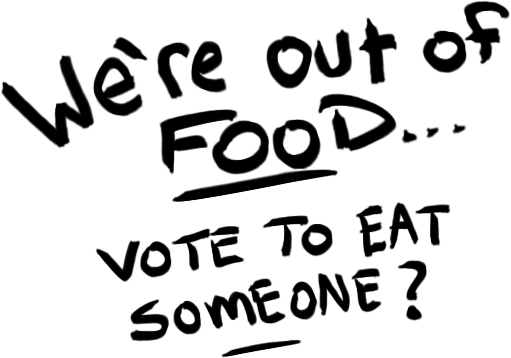 We're out of
FOOD...
VOTE TO EAT
SOMEONE?